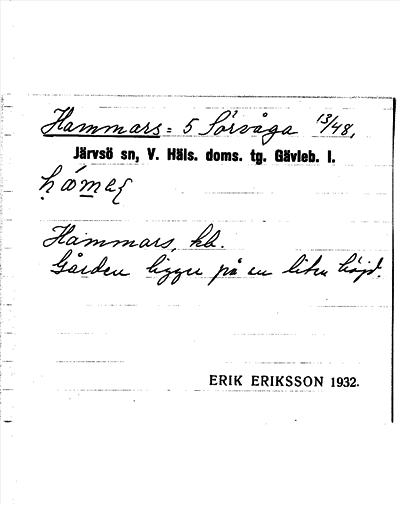 Hammars = 5 Sörvåga 13/48,
Järvsö sn, V. Häls. doms. tg. Gävleb. l.
Hammars, kb.
Gården ligger på en liten höjd.
ERIK ERIKSSON 1932.